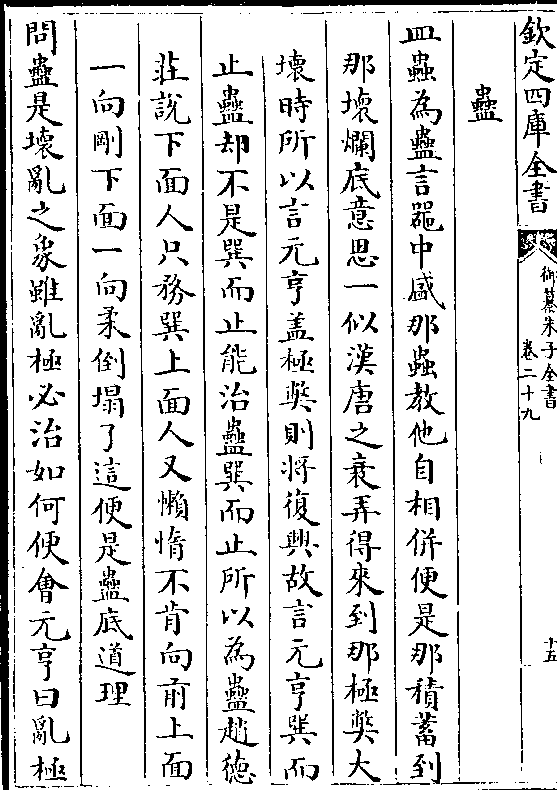 欽定四庫全書
御纂朱子全書
卷二十九
十五
蠱
皿蟲為蠱言器中盛那蟲教他自相併便是那積蓄到
那壞爛底意思一似漢唐之衰弄得來到那極弊大
壞時所以言元亨盖極弊則將復興故言元亨巽而
止蠱却不是巽而止能治蠱巽而止所以為蠱趙徳
莊說下面人只務巽上面人又懶惰不肯向前上面
一向剛下面一向柔倒塌了這便是蠱底道理
問蠱是壞亂之象雖亂極必治如何便㑹元亨曰亂極